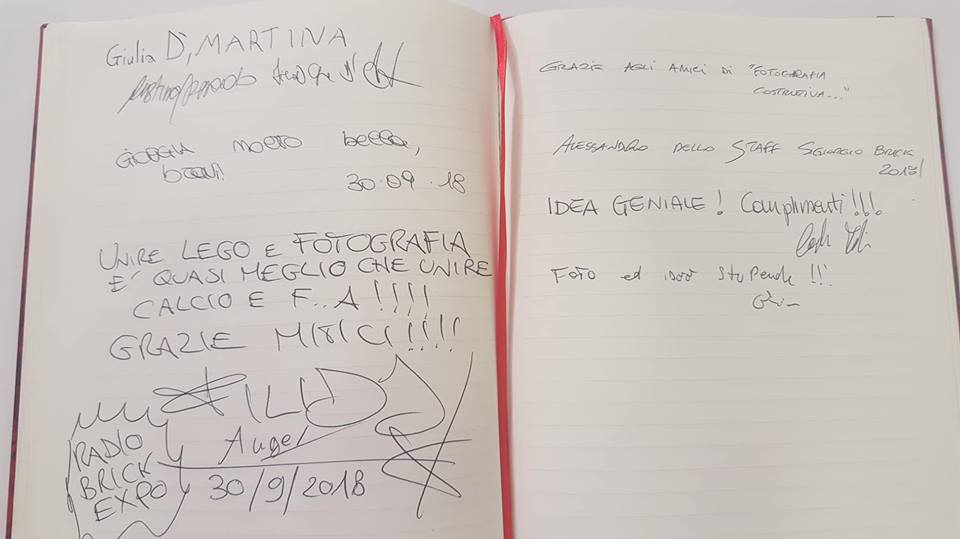 Giulia Di MARTINA
GIORGIA MOLTO BELLA,
BRAVI!
30.09.18
UNIRE LEGO E FOTOGRAFIA
E' QUASI MEGLIO CHE UNIRE
CALCIO E F..A!!!!
GRAZIE MITICI!!!!
RADIO
BRICK
EXPO
Auger
30/9/2018
GRAZIE AGLI AMICI DI "FOTOGRAFIA
COSTRUTTIVA..."
ALESSANDRO DELLO STAFF SGIORGIO BRICK
2018!
IDEA GENIALE! Complimenti!!!.
FOTO ed idee STUPENDE!!!